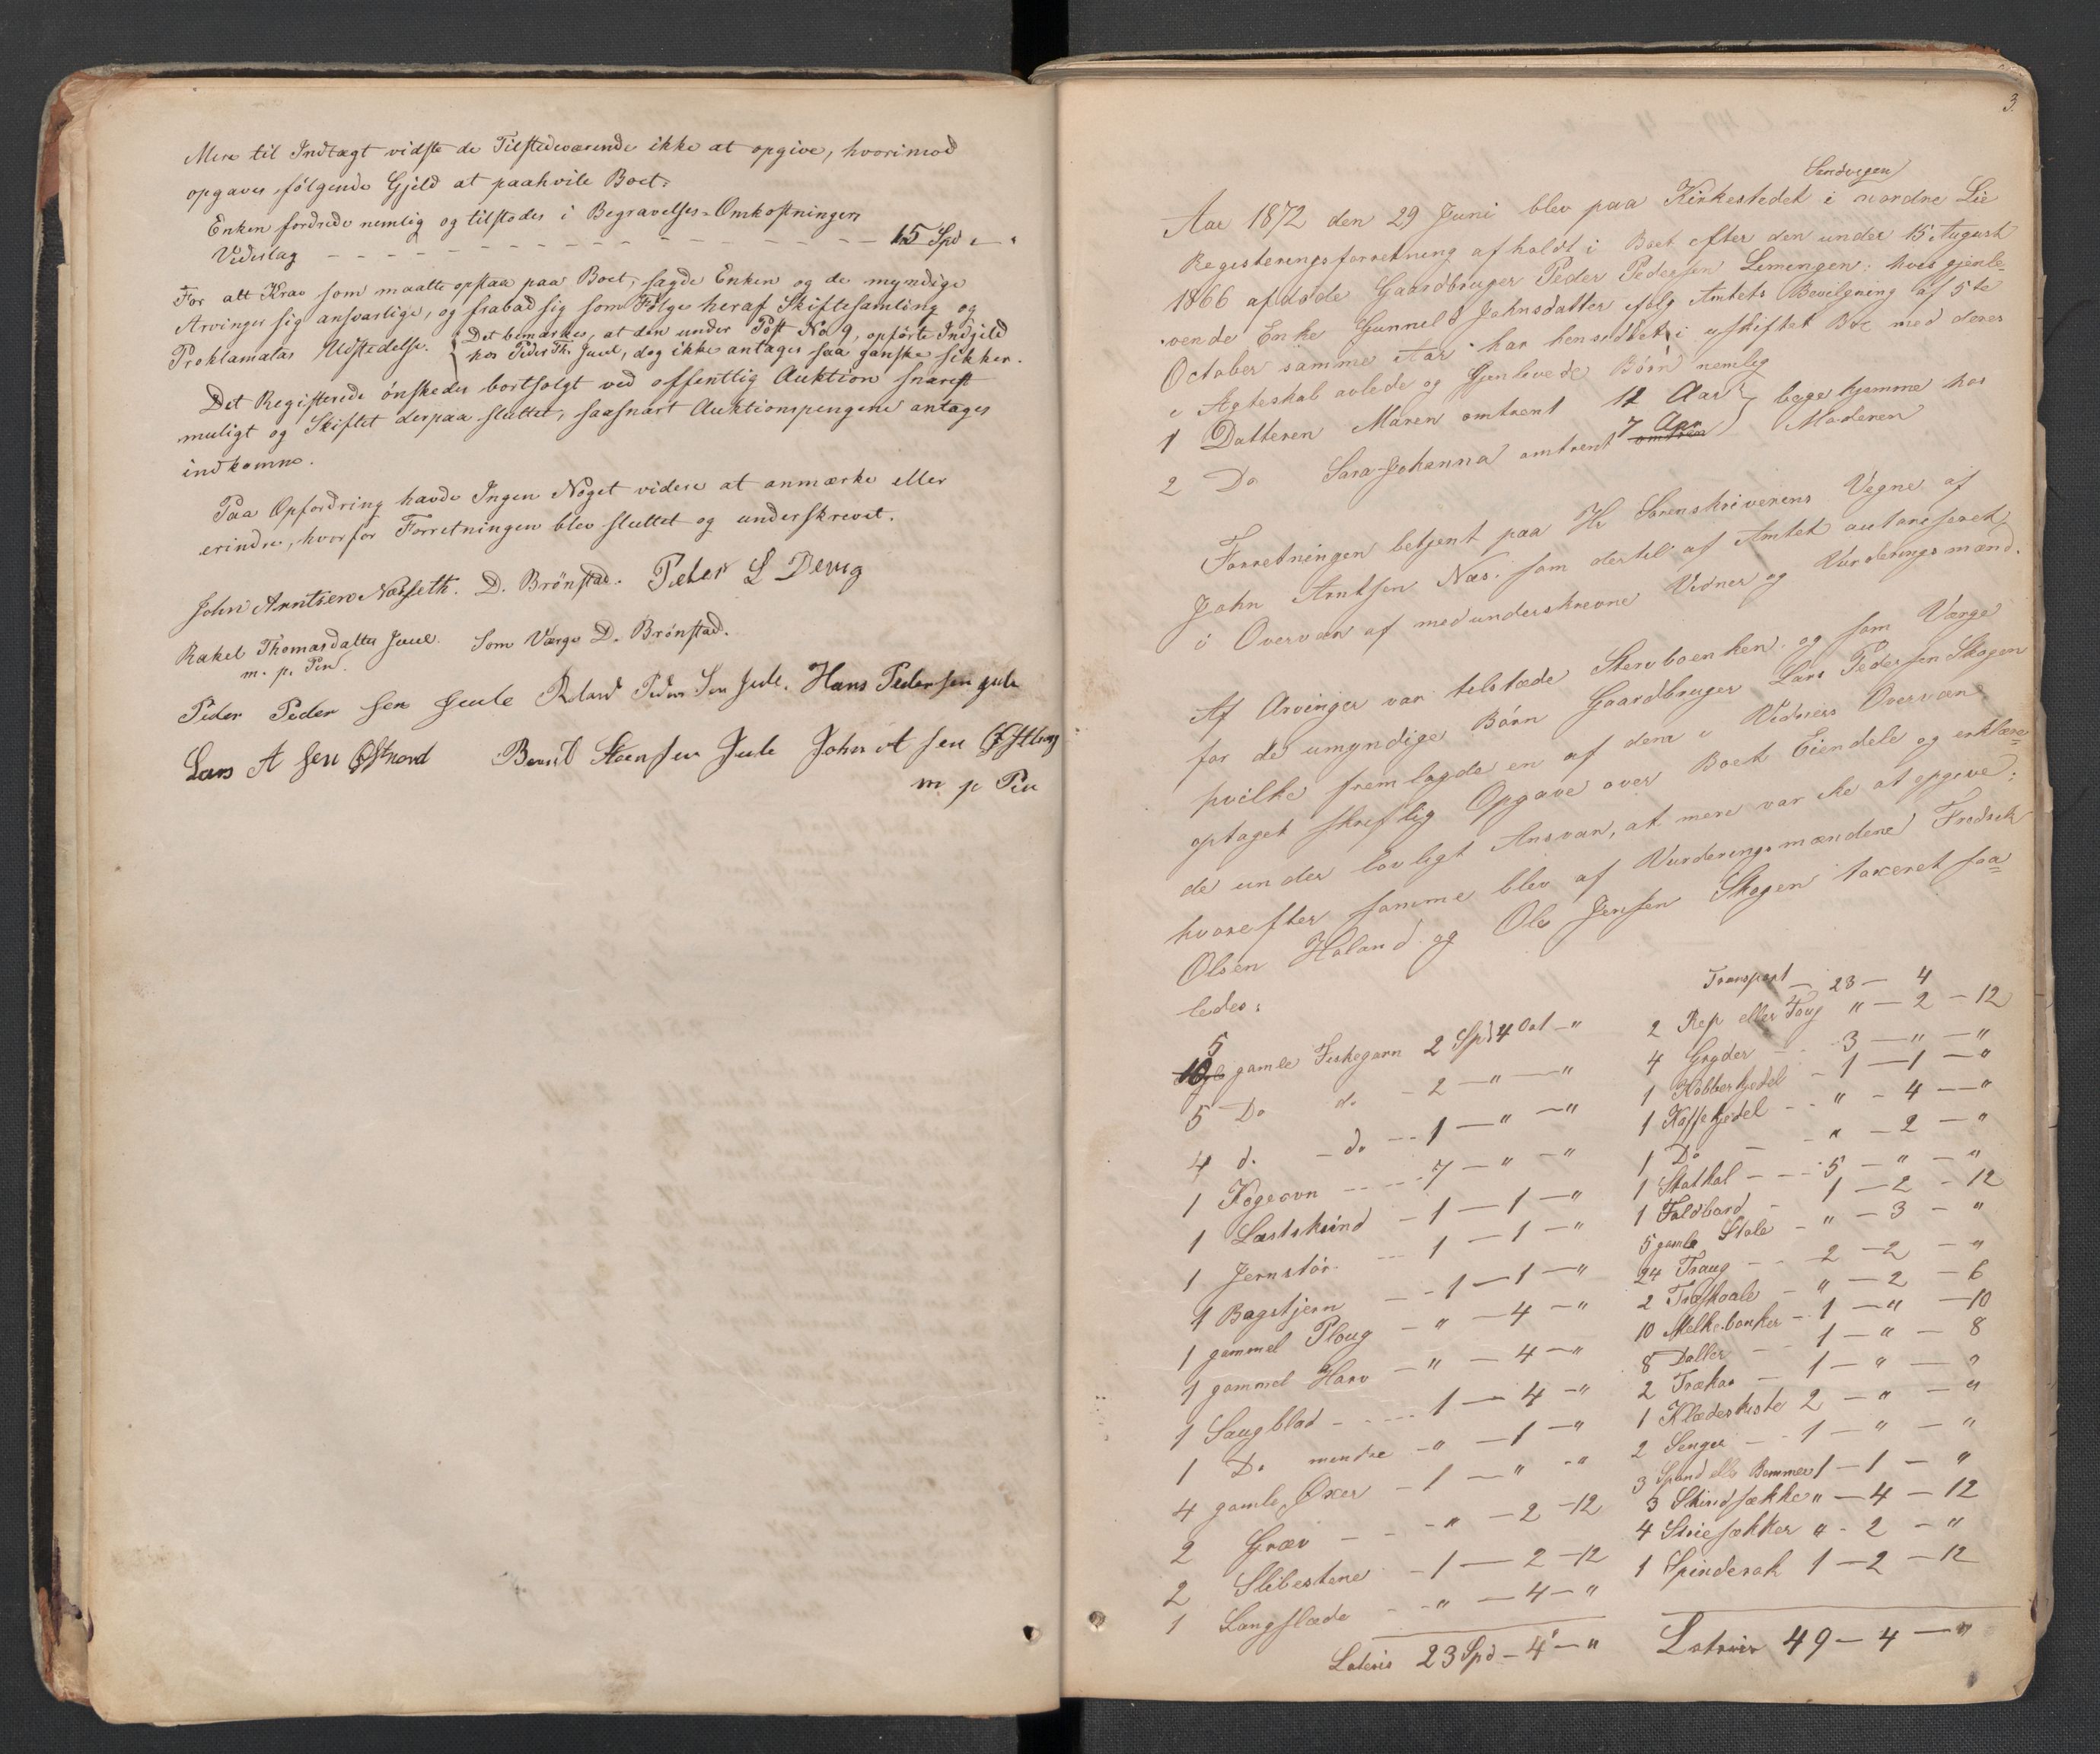 Mere til Indtægt vidste de Tilstedeværende ikke at opgive, hvorimod
opgaves følgende Gjeld at paahvile Boet:
Enken fordrede nemlig og tilstodes i Begravelses-Omkostninger
Vederlag - - - - - - - - - - - - - 15 Spd „ — „
For alt Krav som maatte opstaa paa Boet, sagde Enken og de myndige
Arvinger sig ansvarlige, og frabad sig som Følge heraf Skiftesamling og
Proklamatas Udstedelse. { Det bemærkes, at den under Post No 9, opførte Indgjeld
hos Peder Th. Juul, dog ikke antages saa ganske sikker.
Det Registerede ønskedes bortsolgt ved offentlig Auktion snarest
muligt og Skiftet derpaa sluttet, saasnart Auktionspengene antages
indkomne.
Paa Opfordring havde Ingen Noget videre at anmærke eller
erindre, hvorfor Forretningen blev sluttet og underskrevet.
John Arntsen Næsseth. D. Brønstad. Peter L Devig
Rakel Thomasdatter Juul. Som Værge D. Brønstad.
m. p. Pen.
Peder Peder sen Juule Peder Sen Jule. Hans Pedersen Jule
Lars A sen Østnord Bernt Steensen Jule John A sen
m p Pen
3.
Sandvigen
Aar 1872 den 29 Juni blev paa Kirkestedet i nordre Lie
Registeringsforretning afholdt i Boet efter den under 15 August
1866 afdøde Gaardbruger Peder Pedersen Limingen; hvis gjenle-
vende Enke Gunnild Johnsdatter ifølge Amtets Bevilgning af 5te
October samme Aar har hensiddet i uskiftet Bo med deres
i Ægteskab avlede og Gjenlevede Børn nemlig
1 Datteren Maren omtrent 12 Aar } begge hjemme hos
2 Do Sara Johanna omtrent 7 Aar Moderen
Forretningen betjent paa Hr Sorenskriverens Vegne af
John Arntsen Næs. som dertil af Amtet autoriseret
i Overvær af medunderskrevne Vidner og Vurderingsmænd.
Af Arvinger var tilstæde Stervboenken, og som Værge
for de umyndige Børn Gaardbruger Lars Pedersen Skogen
hvilke fremlagde en af dem i Vidners Overvær
optaget skriftlig Opgave over Boets Eiendele og erklære-
de under lovligt Ansvar, at mere var ike at opgive;
hvorefter samme blev af Vurderingsmændene Fredrik
Olsen Haland og Ole Jensen Skogen taxeret saa-
ledes:
5 gamle Fiskegarn 2 Spd 4 Ort - „
5 Do do - 2 - „ - „
4 do - do - - 1 - „ - „
1 Kogeovn - - - 7 - „ - „
1 Læstskind - 1 - 1 - „
1 Jernstør - - - 1 - 1 - „
1 Bagstjern - - 1 - 1 - „
1 gammel Ploug - „ - 4 - „
1 gammel Harv - „ - 4 - „
1 Saugblad - - - 1 - 4 - „
1 Do mindre - „ - 1 - „
4 gamle Øxer - 1 - „ - „
2 Græv - - - „ - 2 - 12
2 Slibestene - 1 - 2 - 12
1 Langslæde - - „ - 4 - „
Lateris 23 Spd - 4 - „
Transport - 23 - 4
2 Rep eller Toug „ - 2 - 12
4 Gryder - - 3 - „ - „
1 Kobberkjedel - 1 - 1 - „
1 Kaffekjedel - - „ - 4 - „
1 Do - - „ - 2 - „
1 Skathol - - - 5 - „ - „
1 Foldbord - 1 - 2 - 12
5 gamle Stole - „ - 3 - „
24 Traug - - 2 - 2 - „
2 Træskaale - „ - 2 - 6
10 Melkebonker - 1 - „ - 10
8 Daller - - 1 - „ - 8
2 Trækar - 1 - „ - „
1 Klædeskiste 2 - „ - „
2 Senger - - 1 - „ - „
3 Spand eller Bommer 1 - 1 - „
3 Skindsække „ - 4 - 12
4 Striesækker „ - 2 - „
1 Spinderok 1 - 2 - 12
Latrive 49 - 4 - „